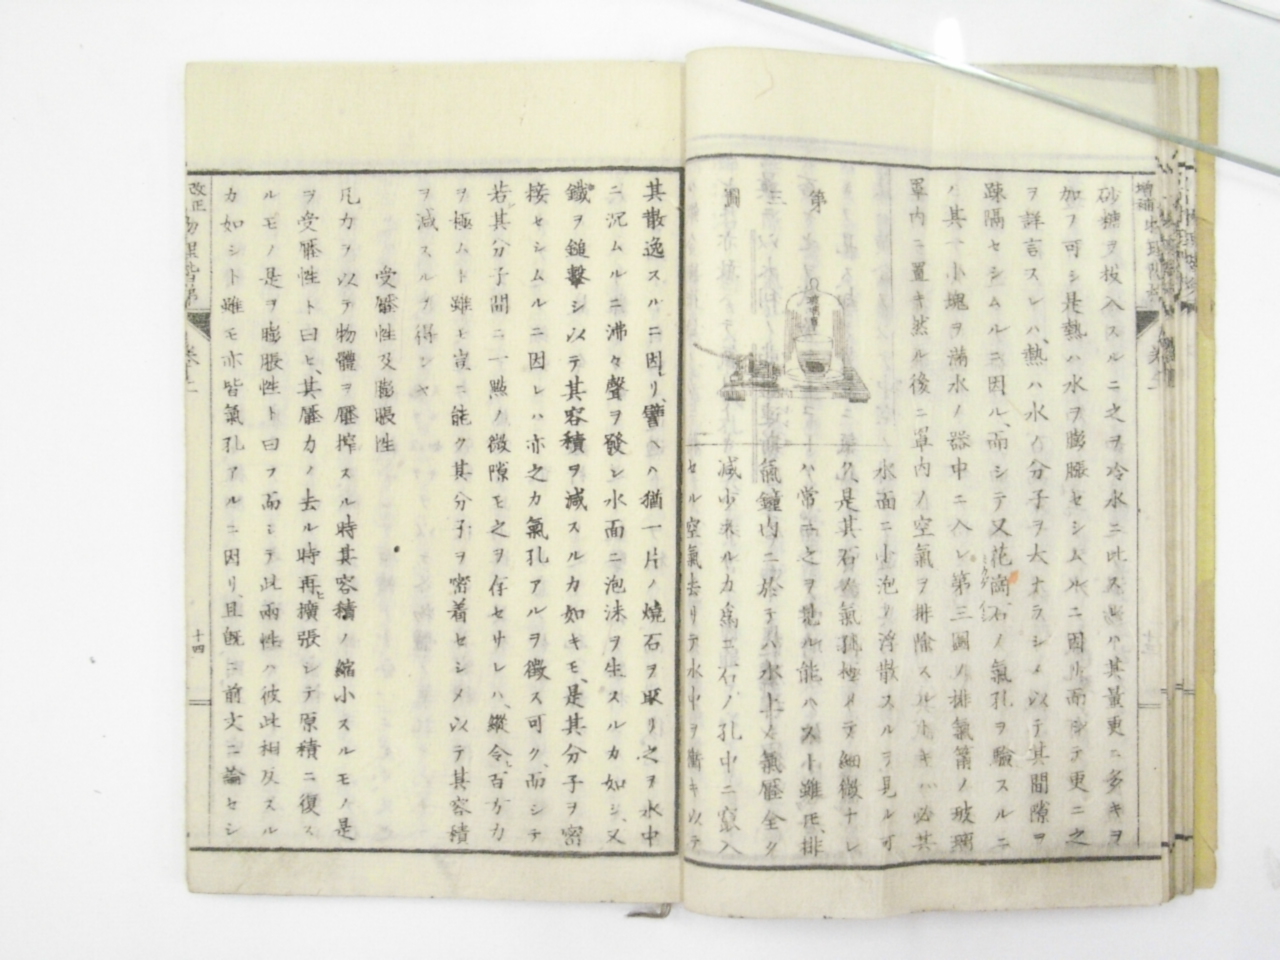 砂糖ヲ投入スルニ之ヲ冷水ニ比スレハ其量更ニ多キヲ
加フ可シ是熱ハ水ヲ膨脹セシムルニ因リ而シテ更ニ之
ヲ詳言スレハ、熱ハ水ノ分子ヲ大ナラシメ以テ其間隙ヲ
疎隔セシムルニ因ル、而シテ又花崗石ノ氣孔ヲ驗スルニ
ハ其一小塊ヲ滿水ノ器中ニ入レ第三圖ノ排氣筩ノ玻璃
罩内ニ置キ然ル後ニ罩内ノ空氣ヲ排除スルトキハ必其
水面ニ小泡ノ浮散スルヲ見ル可
ク、是其石ノ氣孔極メテ細微ナレ
ハ常ニ之ヲ見ル能ハスト雖モ、排
氣鐘内ニ於テハ水上ノ氣壓全ク
減少スルカ爲ニ石ノ孔中ニ竄入
セル空氣去リテ水中ヲ衝キ以テ
第三圖
其散逸スルニ因リ、譬ヘハ猶一片ノ燒石ヲ取リ之ヲ水中
ニ沉ムルニ沸々聲ヲ發シ水面ニ泡沫ヲ生スルカ如シ、又
鐵ヲ鎚擊シ以テ其容積ヲ減スルカ如キモ、是其分子ヲ密
接セシムルニ因レハ亦之カ氣孔アルヲ徵ス可ク、而シテ
若其分子間ニ一點ノ微隙モ之ヲ存セサレハ、縱令百方力
ヲ極ムト雖モ豈ニ能ク其分子ヲ密着セシメ以テ其容積
ヲ減スルヲ得ンヤ
受壓性及膨脹性
凡力ヲ以テ物體ヲ壓搾スル時其容積ノ縮小スルモノ是
ヲ受壓性ト曰ヒ、其壓力ノ去ル時再ヒ擴張シテ原積ニ復ス
ルモノ是ヲ膨脹性ト曰フ而シテ此兩性ハ彼此相反スル
カ如シト雖モ亦皆氣孔アルニ因リ、且既ニ前文ニ論セシ
改正
物理階梯
卷上
十四